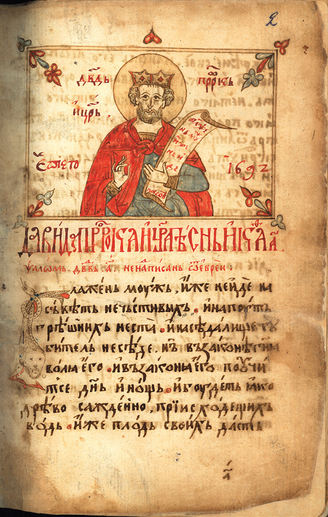 2
дв҃дъ прⷪ҇ркъ
и цр҃ь
1692
Давида прⷪ҇рока и цр҃ѣ пѣснь
ѱаломъ дв҃дꙋ а҃ не написань ѿ еврей
Блажень моужь, иже не иде на
съвѣть нечьстивых и на поуть
грѣшних не ста и на сѣдалищи гоу
битель не сѣде. нъ въ законѣ гни
волꙗ его и въ законѣ его поучи
тсе д҃нь и нощь и боудеть ꙗко
дрѣво сажденно, при исходещих
водь иже плодь свои дасть
а҃